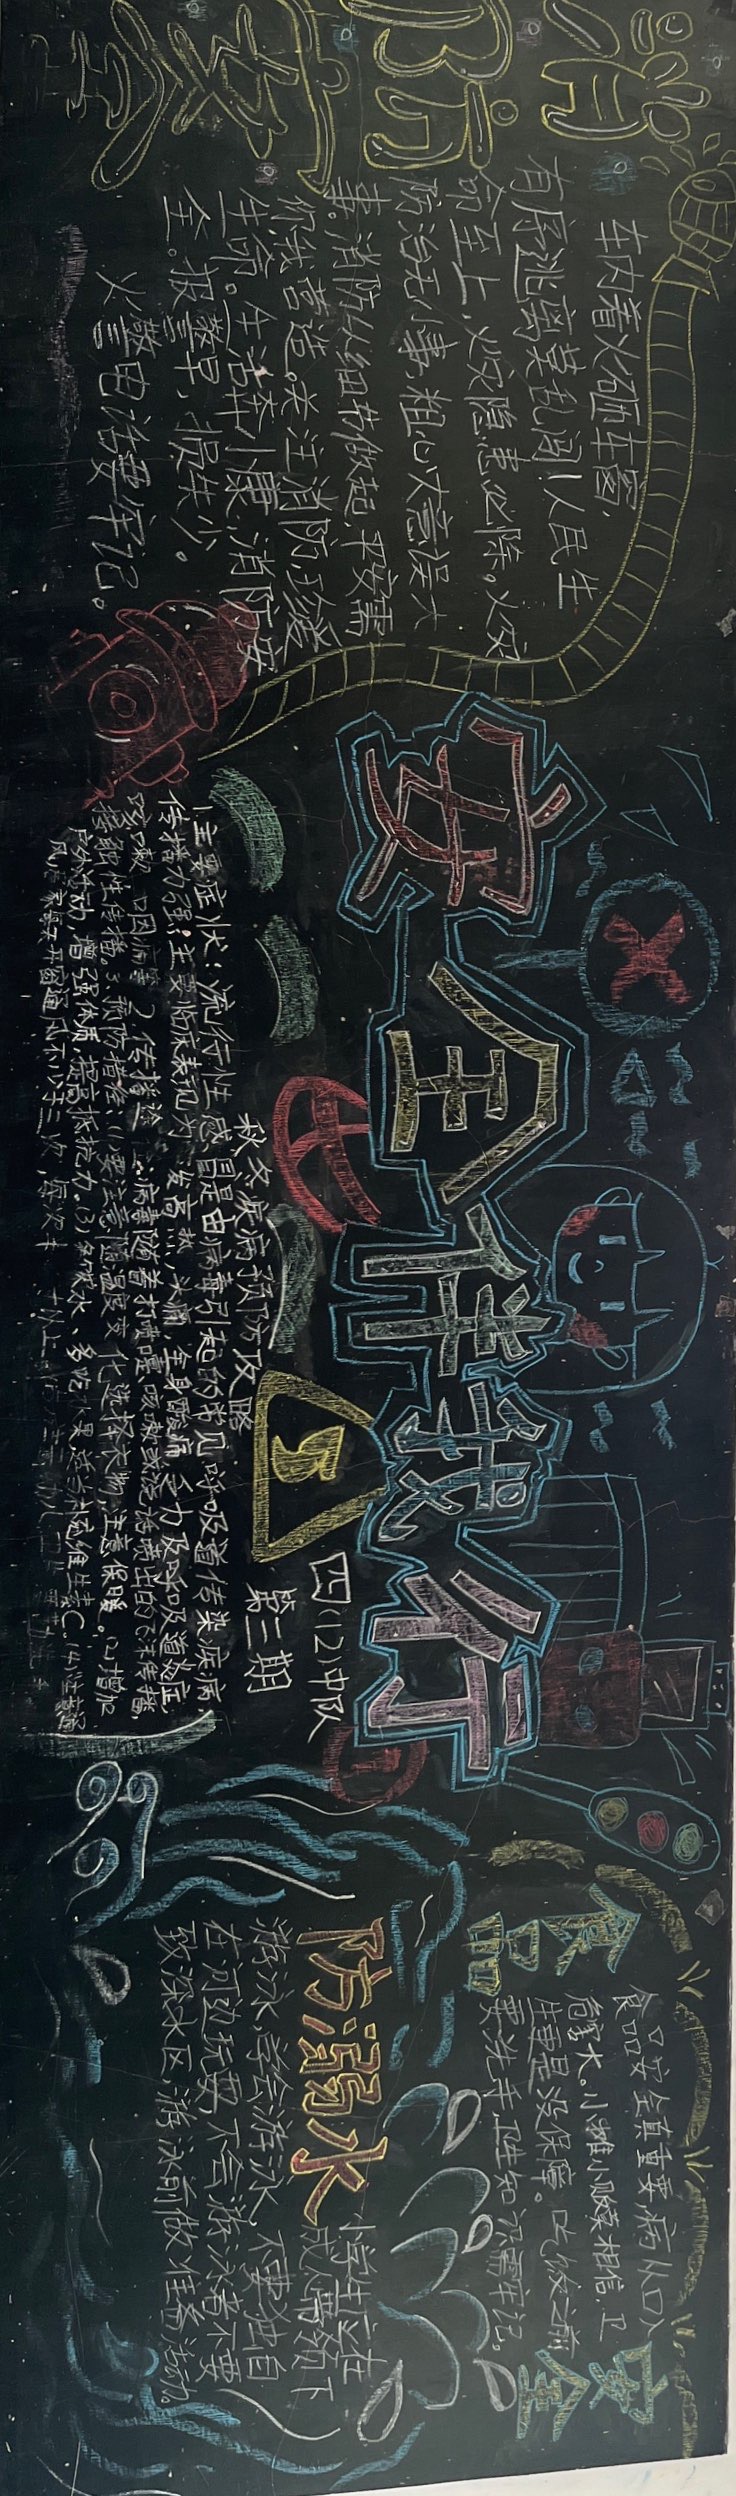 消防安全
车内着火砸车窗,
有序逃离莫乱闯!人民生
命至上,火灾隐患必除。火灾
防治无小事,粗心大意误大
事。消防从细节做起,平安需
你我营造。关注消防,珍爱
生命。生活奔小康,消防安
全。报警早,损失少。
火警电话要牢记。
安全伴我行
四(2)中队
第二期
秋冬疾病预防攻略
1主要症状:流行性感冒是由病毒引起的常见呼吸道传染疾病,
传播力强,主要临床表现为:发高热,头痛,全身酸痛,乏力及呼吸道炎症
咳嗽、咽痛等。2.传播途
病毒随着打喷嚏咳嗽或说话喷出的飞沫传播
接触性传播。3.预防措施:(1)要注意随温度变化选择衣物,注意保暖。(2)增加
户外活动,增强体质,提高抵抗力。(3)多饮水、多吃水果,适当补充维生素C。(4)注意通
风,每天开窗通风不少于三次,每次
食品
安全
食品安全真重要,病从口入
危害大。小摊小贩莫相信,卫
生更是没保障。吃饭之前
要洗手,卫生知识需牢记。
防溺水
小学生应在
成人带领下
游泳,学会游泳,不要独自
在河边玩耍,不会游泳者不要
致深水区,游泳前做准备活动。